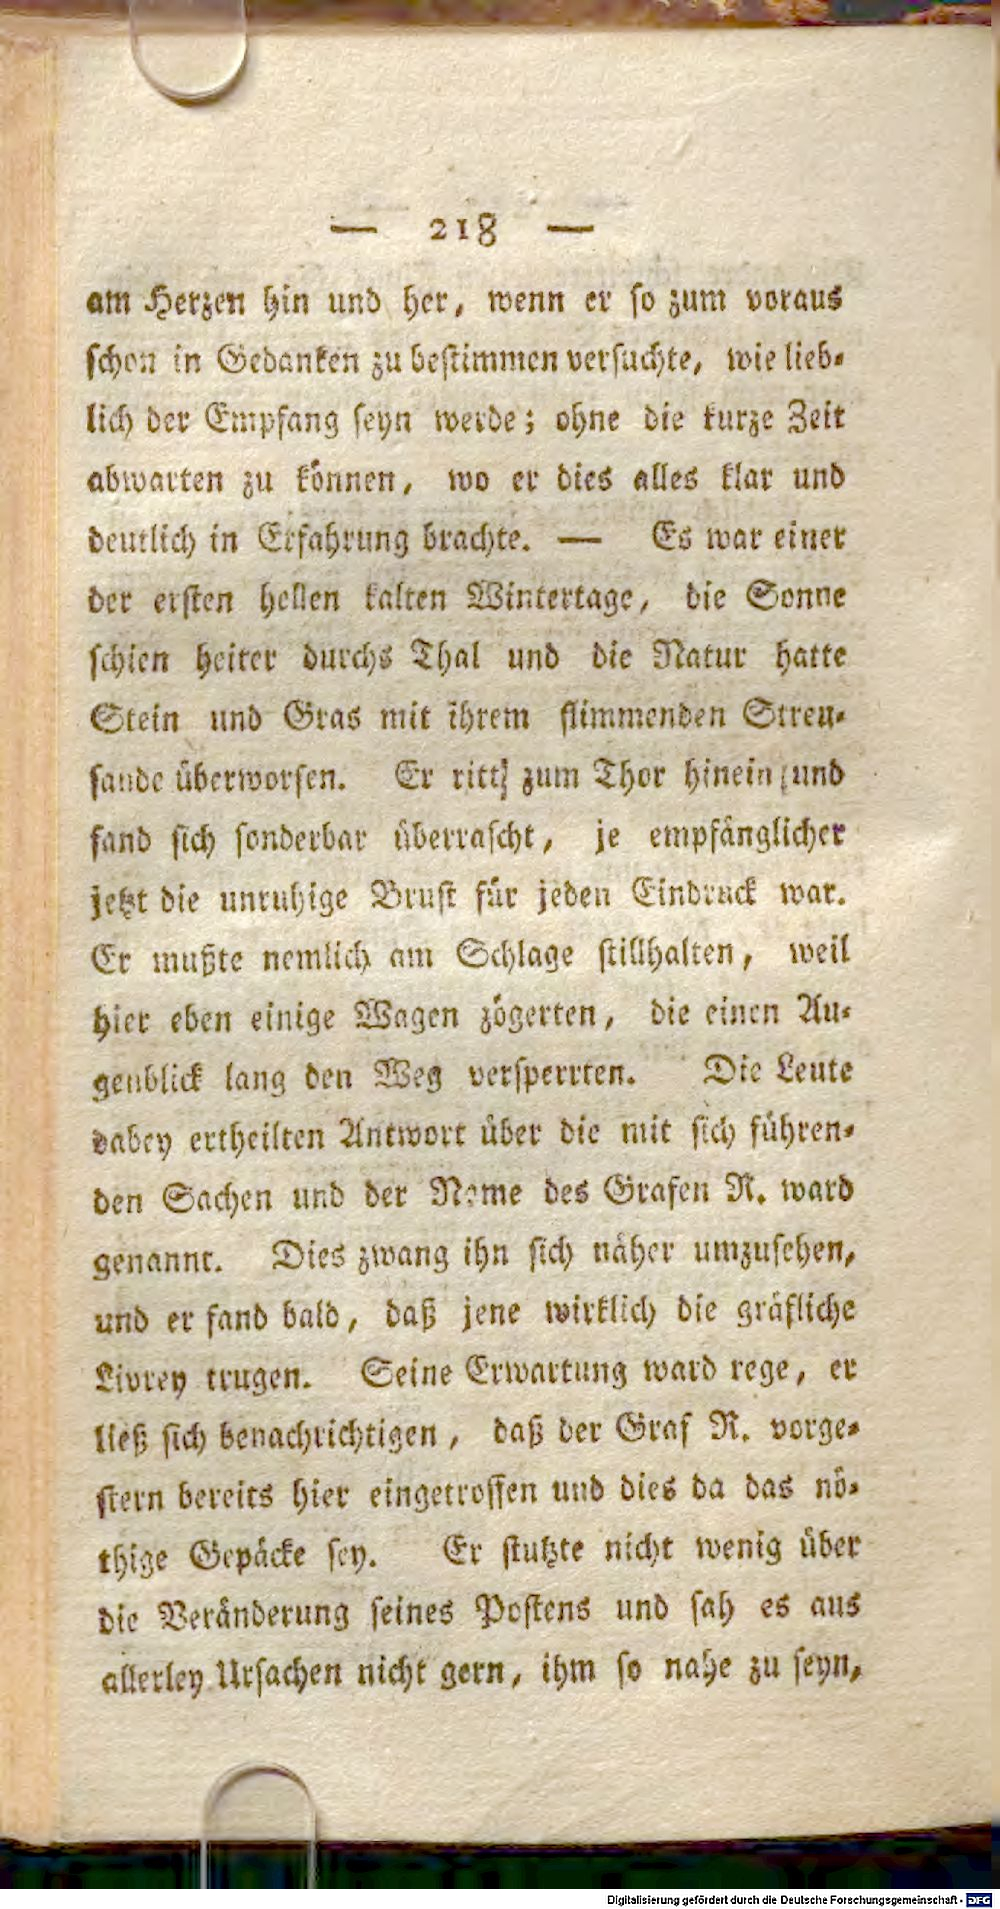 — 218 —
am Herzen hin und her, wenn er so zum voraus
schon in Gedanken zu bestimmen versuchte, wie lieb-
lich der Empfang seyn werde; ohne die kurze Zeit
abwarten zu können, wo er dies alles klar und
deutlich in Erfahrung brachte. — Es war einer
der ersten hellen kalten Wintertage, die Sonne
schien heiter durchs Thal und die Natur hatte
Stein und Gras mit ihrem flimmenden Streu-
sande überworfen. Er ritt zum Thor hinein und
fand sich sonderbar überrascht, je empfänglicher
jetzt die unruhige Brust für jeden Eindruck war.
Er mußte nemlich am Schlage stillhalten, weil
hier eben einige Wagen zögerten, die einen Au-
genblick lang den Weg versperrten. Die Leute
dabey ertheilten Antwort über die mit sich führen-
den Sachen und der Name des Grafen R. ward
genannt. Dies zwang ihn sich näher umzusehen,
und er fand bald, daß jene wirklich die gräfliche
Livrey trugen. Seine Erwartung ward rege, er
ließ sich benachrichtigen, daß der Graf R. vorge-
stern bereits hier eingetroffen und dies da das nö-
thige Gepäcke sey. Er stutzte nicht wenig über
die Veränderung seines Postens und sah es aus
allerley Ursachen nicht gern, ihm so nahe zu seyn,
Digitalisierung gefördert durch die Deutsche Forschungsgemeinschaft - DFG